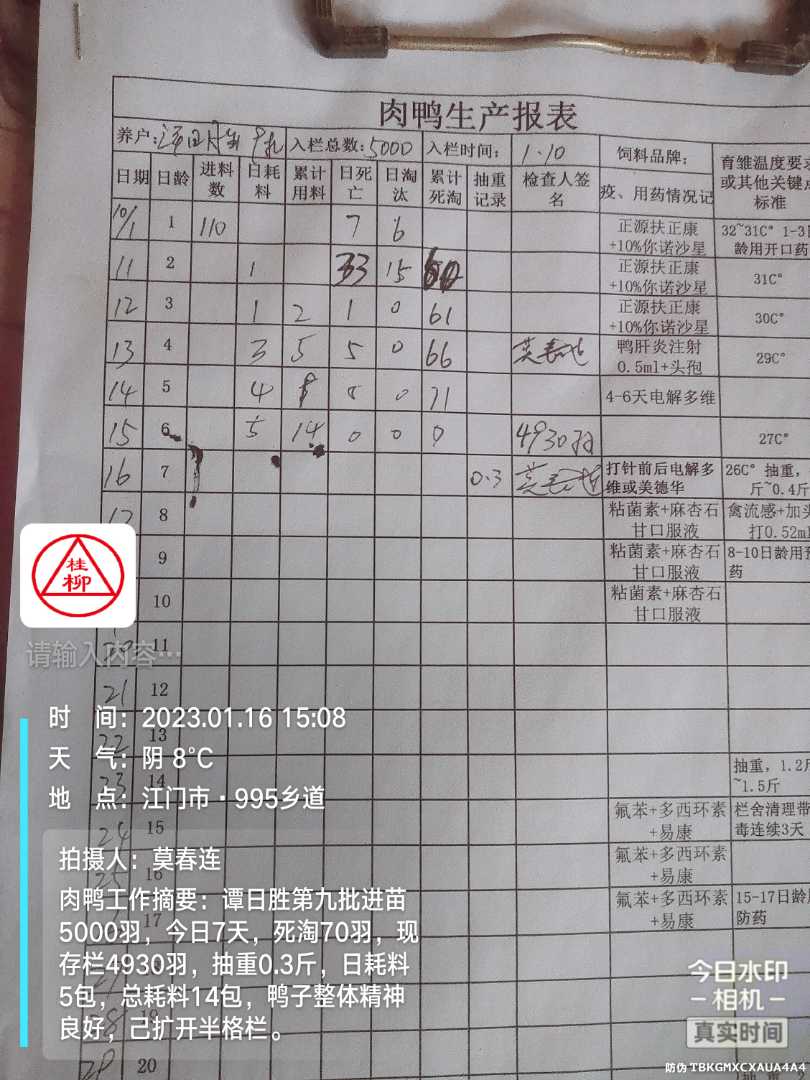 肉鸭生产报表
养户: 入栏总数:5000 入栏时间: 1.10 饲料品牌: 育雏温度要求或其他关键点标准
日期 日龄 进料数 日耗料 累计用料 日死亡 日淘汰 累计死淘 抽重记录 检查人签名 疫、用药情况记
10/1 1 110 7 6 正源扶正康+10%你诺沙星 32~31C° 1-3日龄用开口药
11 2 1 33 15 正源扶正康+10%你诺沙星 31C°
12 3 1 2 1 0 61 正源扶正康+10%你诺沙星 30C°
13 4 3 5 5 0 66 鸭肝炎注射0.5ml+头孢 29C°
14 5 4 0 71 4-6天电解多维
15 6 5 14 0 0 0 4930羽 27C°
16 7 0.3 打针前后电解多维或美德华 26C° 抽重, 斤~0.4斤
17 8 粘菌素+麻杏石甘口服液 禽流感+加头 打0.52ml
9 粘菌素+麻杏石甘口服液 8-10日龄用预 药
10 粘菌素+麻杏石甘口服液
11
21 12
22 13
23 14 抽重，1.2斤~1.5斤
24 15 氟苯+多西环素+易康 栏舍清理带 毒连续3天
25 16 氟苯+多西环素+易康
17 氟苯+多西环素+易康 15-17日龄 防药
19
20
桂柳
请输入内容…
时 间：2023.01.16 15:08
天 气：阴 8℃
地 点：江门市·995乡道
拍摄人：莫春连
肉鸭工作摘要：谭日胜第九批进苗
5000羽，今日7天，死淘70羽，现
存栏4930羽，抽重0.3斤，日耗料
5包，总耗料14包，鸭子整体精神
良好，己扩开半格栏。
今日水印
相机
真实时间
防伪 TBKGMXCXAUA4A4